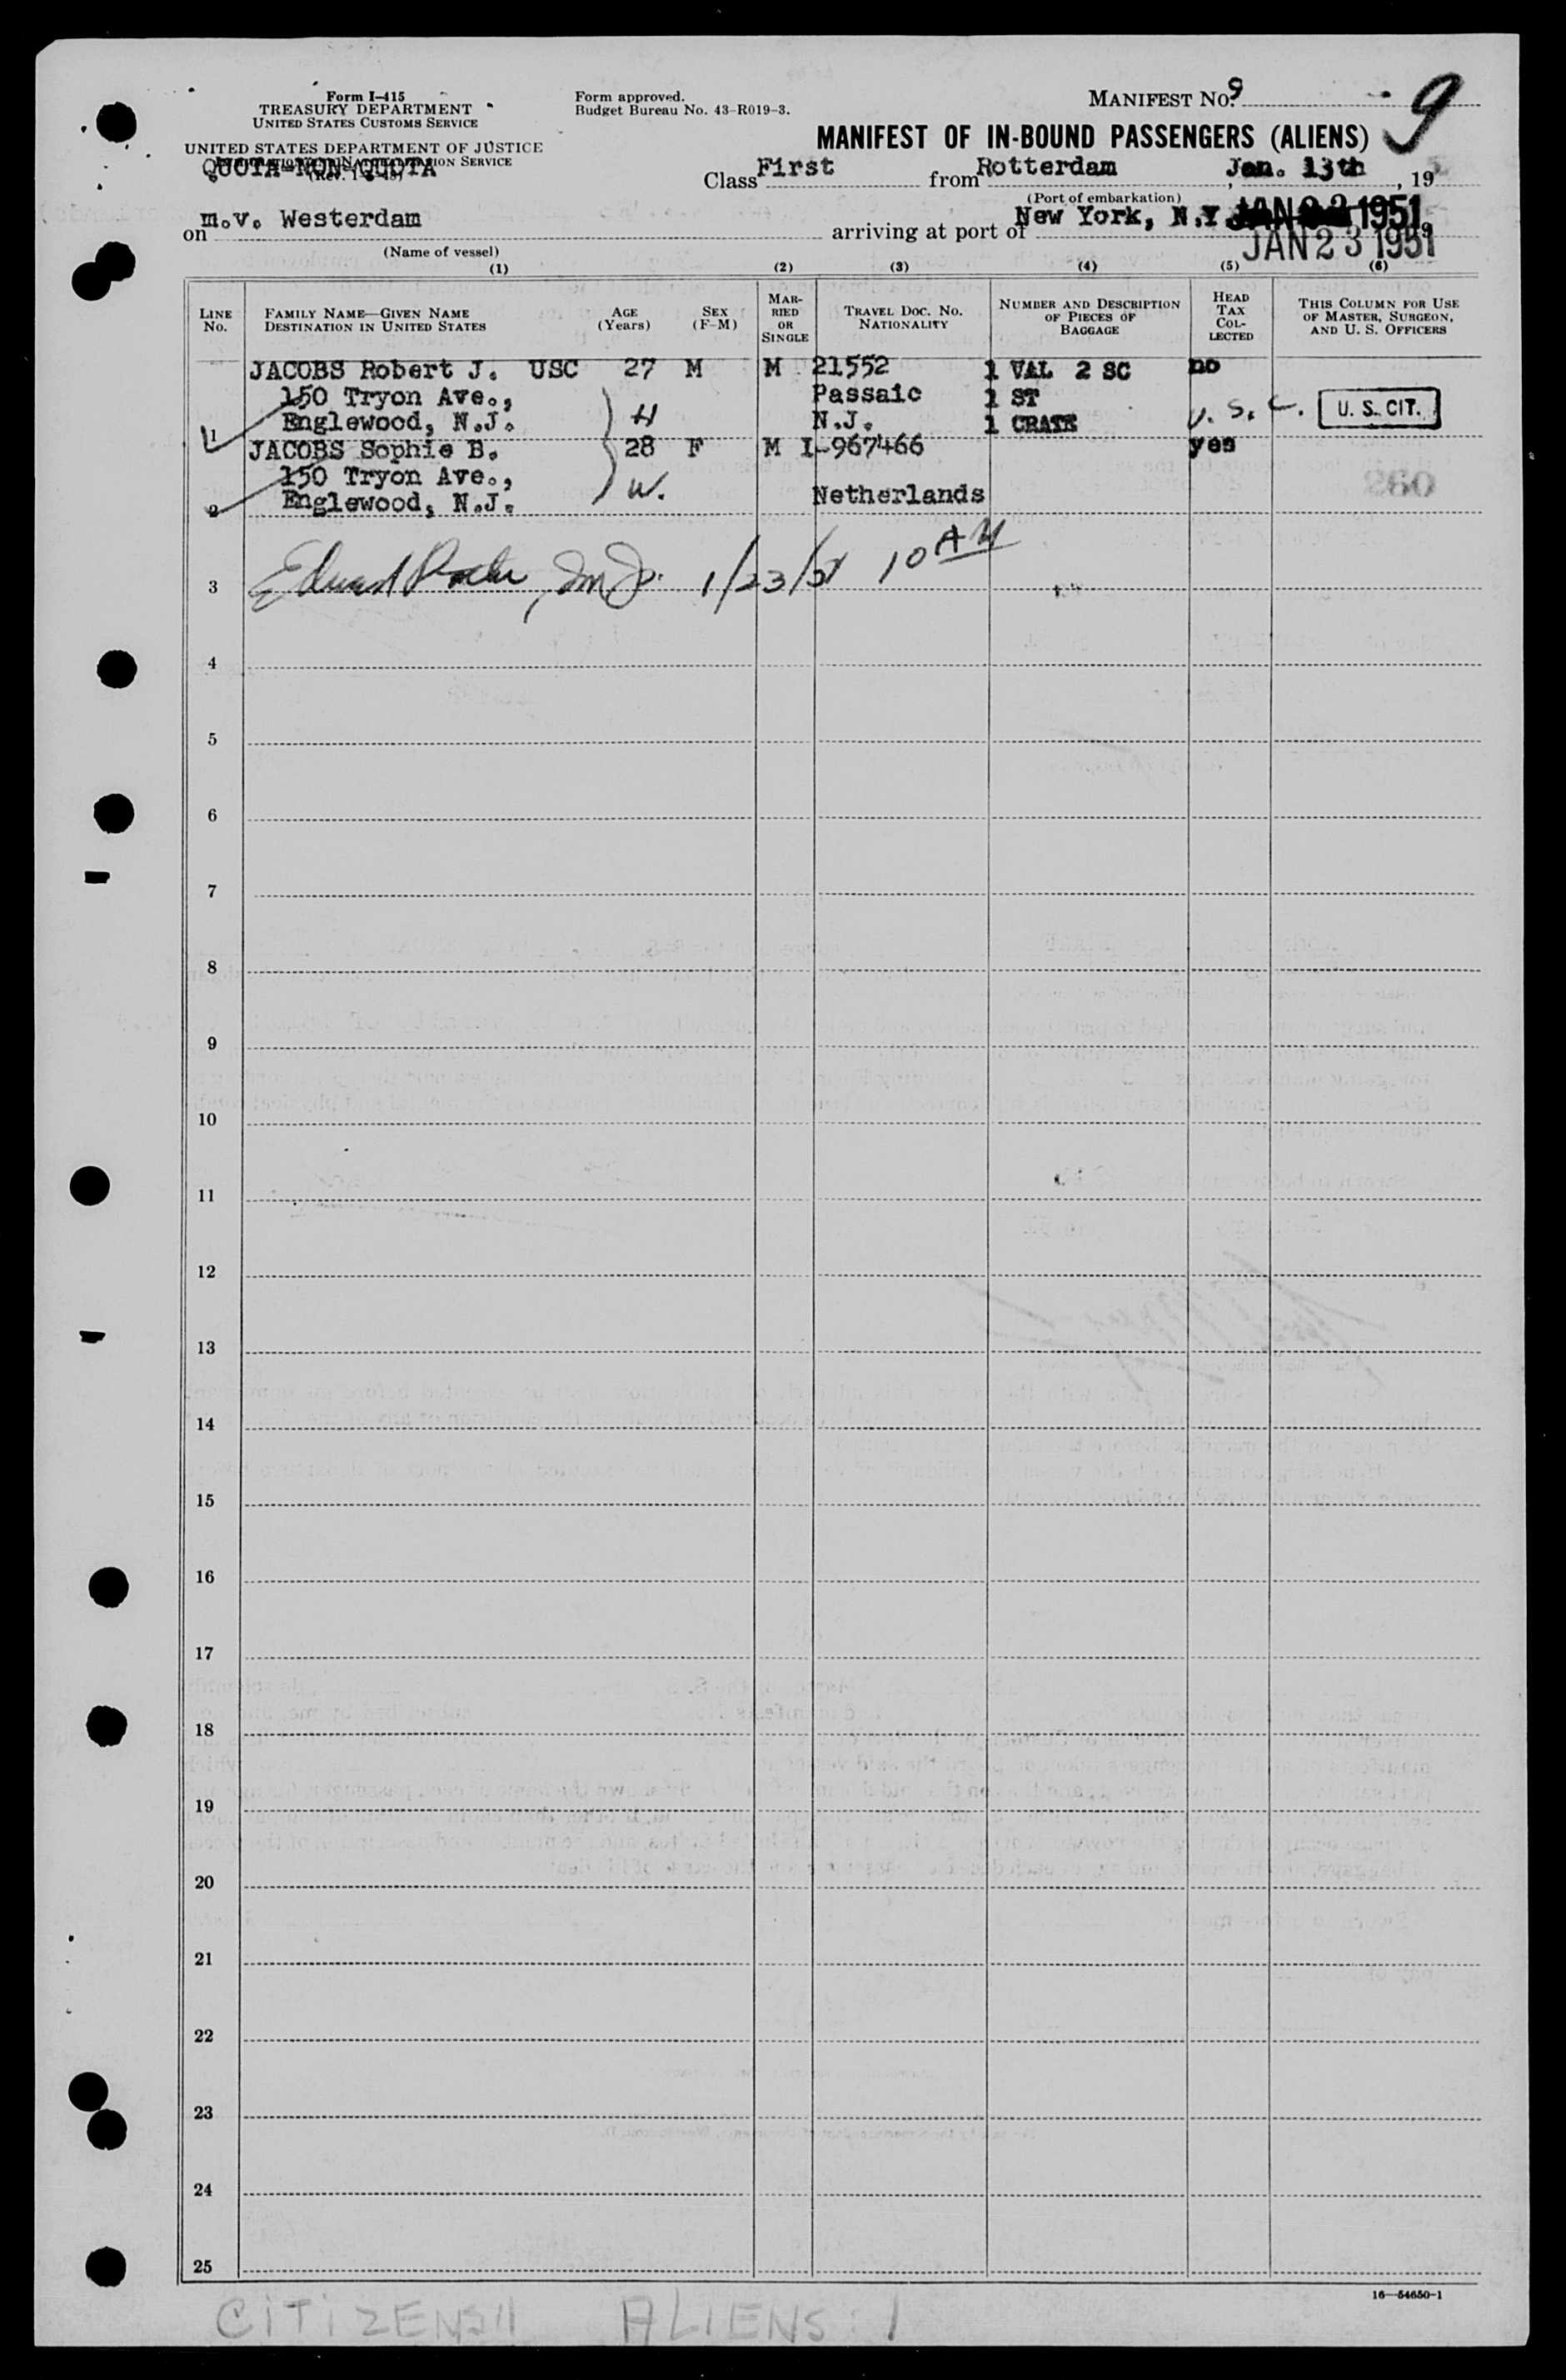 Form I-415
TREASURY DEPARTMENT
UNITED STATES CUSTOMS SERVICE
UNITED STATES DEPARTMENT OF JUSTICE
QUOTA-NON-QUOTA
Form approved.
Budget Bureau No. 43-R019-3.
MANIFEST NO. 9
9
MANIFEST OF IN-BOUND PASSENGERS (ALIENS)
Class First from Rotterdam, Jan. 13th, 19
(Port of embarkation)
on m.v. Westerdam arriving at port of New York, N.Y. JAN 1951
JAN 23 1951
(Name of vessel)
(1) (2) (3) (4) (5) (6)
LINE NO.
FAMILY NAME—GIVEN NAME
DESTINATION IN UNITED STATES
AGE (Years)
SEX (F-M)
MARRIED OR SINGLE
TRAVEL DOC. NO. NATIONALITY
NUMBER AND DESCRIPTION OF PIECES OF BAGGAGE
HEAD TAX COLLECTED
THIS COLUMN FOR USE OF MASTER, SURGEON, AND U. S. OFFICERS
JACOBS Robert J. USC 27 M M 21552 1 VAL 2 SC no
150 Tryon Ave., Passaic 1 ST
1 Englewood, N.J. H N.J. 1 CRATE U. S. C. U. S. CIT.
JACOBS Sophie B. 28 F M I-967466 yes
150 Tryon Ave.,
2 Englewood, N.J. W. Netherlands
260
3 Edward 1/23/51 10 AM
4
5
6
7
8
9
10
11
12
13
14
15
16
17
18
19
20
21
22
23
24
25
16—54650-1
CITIZENS 1 ALIENS: 1